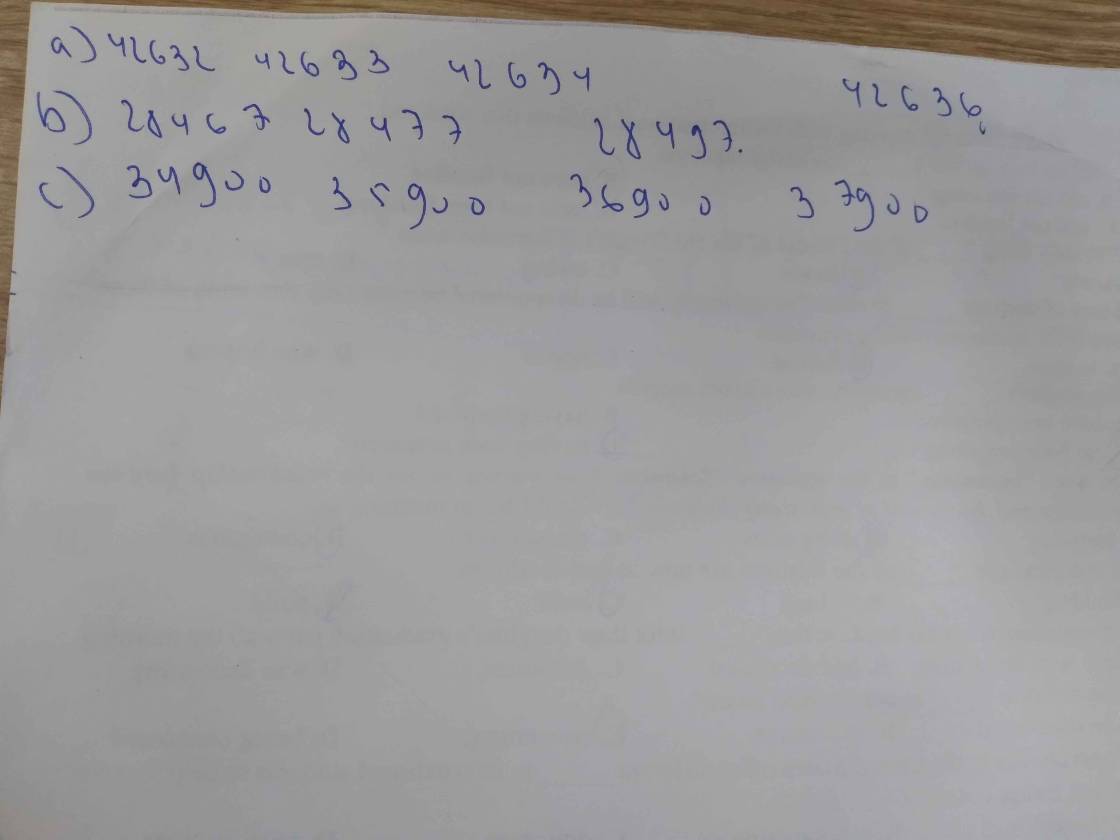 a) 42632 42633 42634 42636
b) 28467 28477 28497.
c) 34900 35900 36900 37900